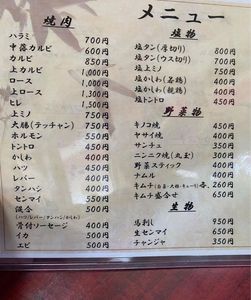 メニュー
焼肉
ハラミ 700円
中落カルビ 600円
カルビ 850円
上カルビ 1,000円
ロース 1,000円
上ロース 1,300円
ヒレ 1,500円
上ミノ 750円
大腸(テッチャン) 750円
ホルモン 550円
トントロ 450円
かしわ 400円
ハツ 450円
レバー 400円
タンハシ 400円
センマイ 550円
混合 500円
(ハツ/レバー/タンハシ/かしわ)
骨付ソーセージ 400円
イカ 500円
エビ 500円
塩物
塩タン(厚切り) 800円
塩タン(ウス切り) 700円
塩上ミノ 750円
塩かしわ(若鶏) 400円
塩かしわ(親鶏) 400円
塩トントロ 450円
野菜物
キノコ焼 450円
ヤサイ焼 400円
サンチュ 350円
ニンニク焼(丸玉) 300円
野菜スティック 400円
ナムル 400円
キムチ(白菜・大根・キューリ)各、260円
キムチ盛合せ 650円
生物
馬刺し 950円
生センマイ 650円
チャンジャ 350円